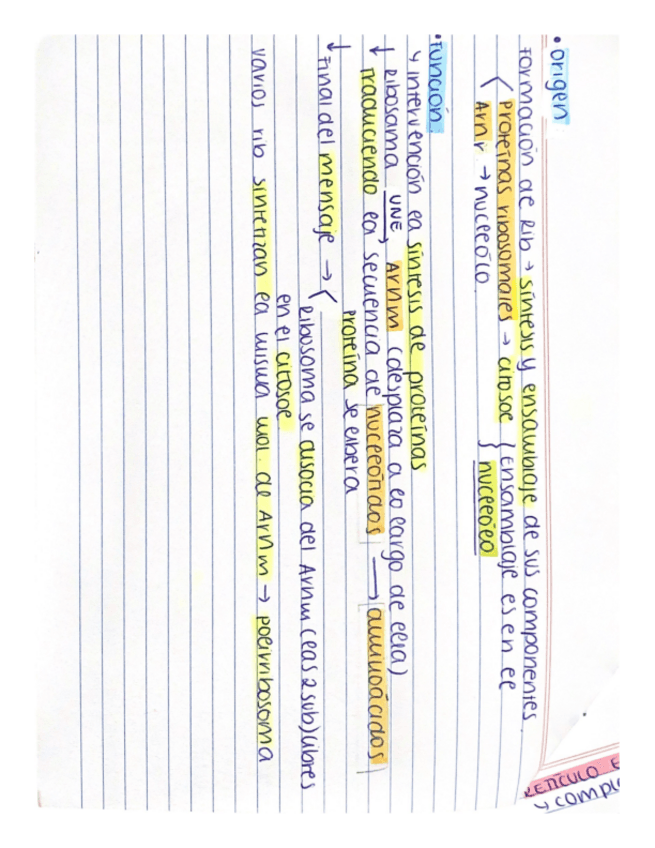 • origen
Formación de Rib → síntesis y ensamblaje de sus componentes.
⟨ Proteínas ribosomales → citosol } Ensamblaje es en el
Arnr → nucleólo. } nucleólo
• Función:
↳ intervención la síntesis de proteínas
Ribosoma UNE Arnm (desplaza a lo largo de ella)
↓ traduciendo la secuencia de nucleótidos → aminoácidos
↓ Final del mensaje → ⟨ Proteína se libera
Ribosoma se disocia del Arnm (las 2 sub) libres
en el citosol
varios rib sintetizan la misma mol. de Arnm → polirribosoma
RETÍCULO E